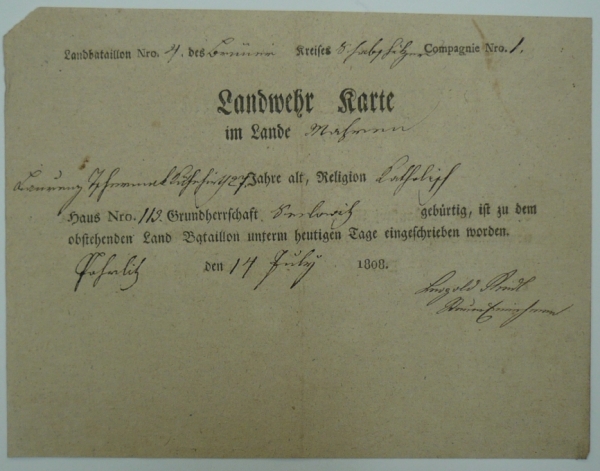 Landbataillon Nro. 4. des Brünner Kreises Compagnie Nro. 1.
Landwehr Karte
im Lande Mähren
27 Jahre alt, Religion Catholisch
Haus Nro. 113. Grundherrschaft Seelowitz gebürtig, ist zu dem
obstehenden Land Bataillon unterm heutigen Tage eingeschrieben worden.
Pohrlitz den 14 July 1808.
Leopold